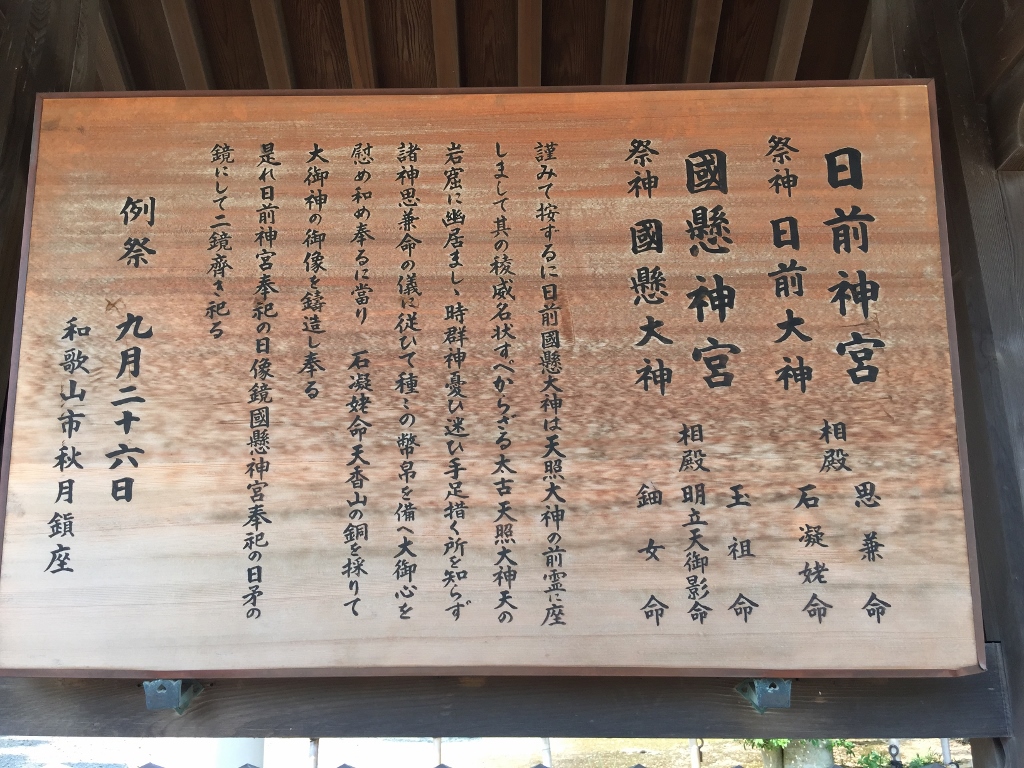 日前神宮
祭神 日前大神
相殿 思兼命
石凝姥命
國懸神宮
祭神 國懸大神
相殿 玉祖命
明立天御影命
鈿女命
謹みて按するに日前國懸大神は天照大神の前霊に座
しまして其の稜威名状すべからざる太古天照大神天の
岩窟に幽居ましゝ時群神憂ひ迷ひ手足措く所を知らず
諸神思兼命の儀に従ひて種々の幣帛を備へ大御心を
慰め和め奉るに當り 石凝姥命天香山の銅を採りて
大御神の御像を鑄造し奉る
是れ日前神宮奉祀の日像鏡國懸神宮奉祀の日矛の
鏡にして二鏡齊き祀る
例祭 九月二十六日
和歌山市秋月鎮座